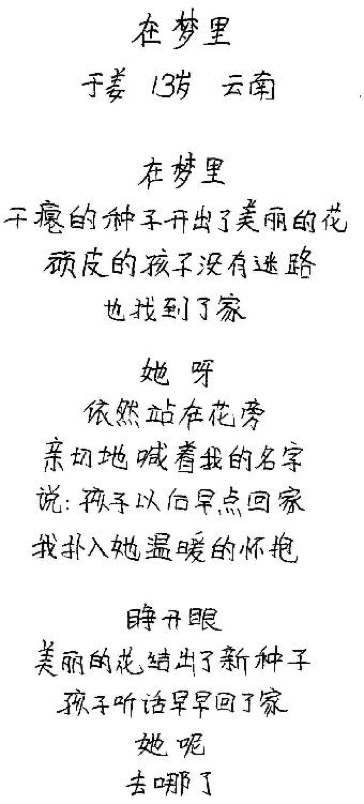 在梦里
于姜 13岁 云南
在梦里
干瘪的种子开出了美丽的花
顽皮的孩子没有迷路
也找到了家
她呀
依然站在花旁
亲切地喊着我的名字
说:孩子以后早点回家
我扑入她温暖的怀抱
睁开眼
美丽的花结出了新种子
孩子听话早早回了家
她呢
去哪了